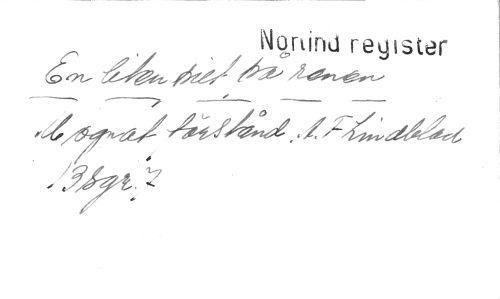 Norlind register
En liten visit på renen
M ognat förstånd. A. F Lindblad
13 sgr. 7